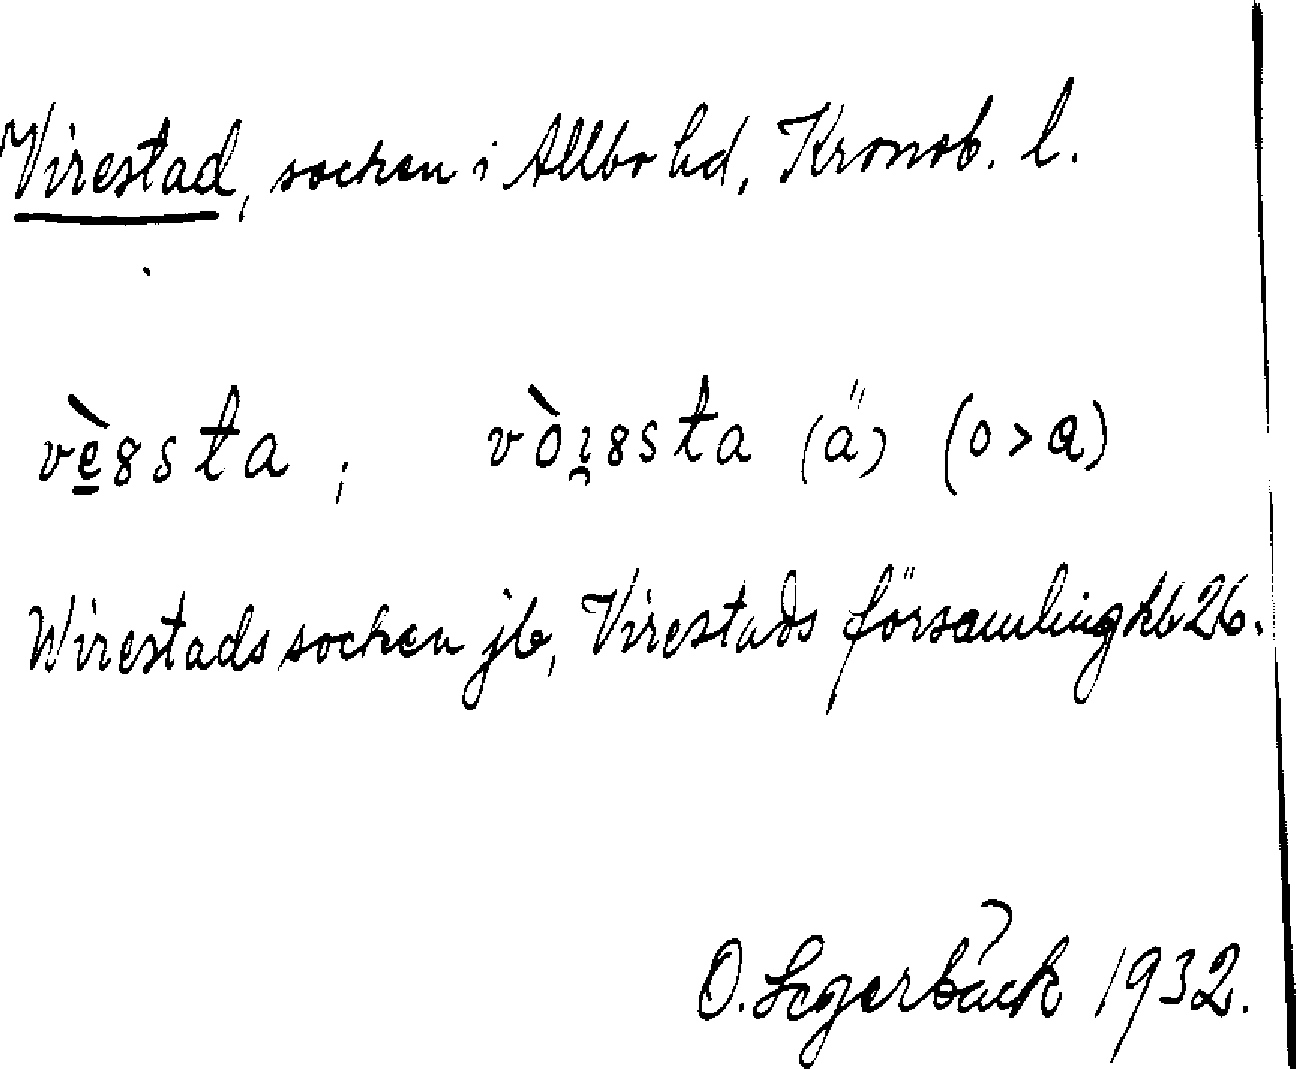 Virestad, socken i Allbo hd, Kronob. l.
vè̱8sta ; vòı̯8sta (ä) (o > a)
Wirestads socken jb, Virestads församling kb 26.
O. Segerbäck 1932.